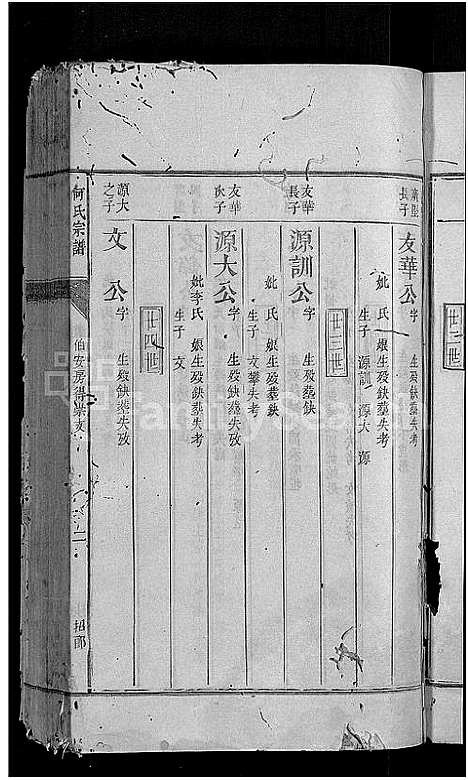 長子
友華公字 生殁缺葬失考
妣 氏 娘生殁缺葬失考
生子 源訓 源大 源
廿三世
友華長子
源訓公字 生殁葬缺
妣 氏 娘生殁葬缺
生子 文攀失考
友華次子
源大公字 生殁缺葬失攷
妣李氏 娘生殁缺葬失考
生子 文
廿四世
源大之子
文 公字 生殁缺葬失攷
何氏宗譜
伯安房得崇支
二